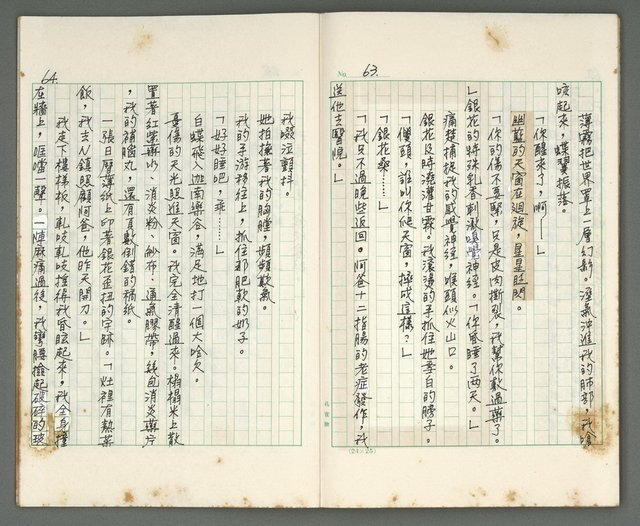 No. 63.
薄霧把世界罩上一層幻紗。溼氣沖進我的肺部，我嗆
咳起來，蝶翼振落。
「你醒來了，啊——」
幽藍的天窗在迴旋，星星眨閃。
「你的傷不要緊，只是皮肉撕裂，我幫你敷過藥了。
」銀花的特殊乳香刺激嗅覺神經。「你昏睡了兩天。」
痛楚捕捉我的感覺神經，喉頭似火山口。
銀花及時澆灌甘霖。我滾湯的手抓住她季白的膀子。
「儍頭，誰叫你爬天窗，摔成這樣？」
「銀花桑……」
「我只不過晚些返回。阿爸十二指腸的老症發作，我
送他去醫院。」
(24×25)
64.
我啜泣顫抖。
她拍撫著我的胸膛，頻頻歎氣。
我的手游移往上，抓住那肥軟的奶子。
「好好睡吧，乖……」
白蝶飛入迦南樂谷，滿足地打一個大哈欠。
憂傷的天光照進天窗。我完全清醒過來。榻榻米上散
置著紅藥水、消炎粉、紗布、通氣膠帶，幾包消炎藥片
，我的補腦丸，還有頁數倒錯的稿紙。
一張日曆薄紙上印著銀花歪扭的字跡。「灶裡有熱藥
飯，我去N鎮照顧阿爸，他昨天開刀。」
我走下樓梯板，軋吱軋吱搖得我昏眩起來，我全身撞
在牆上，哐噹一聲。一陣麻痛過後，我彎腰撿起破碎的玻